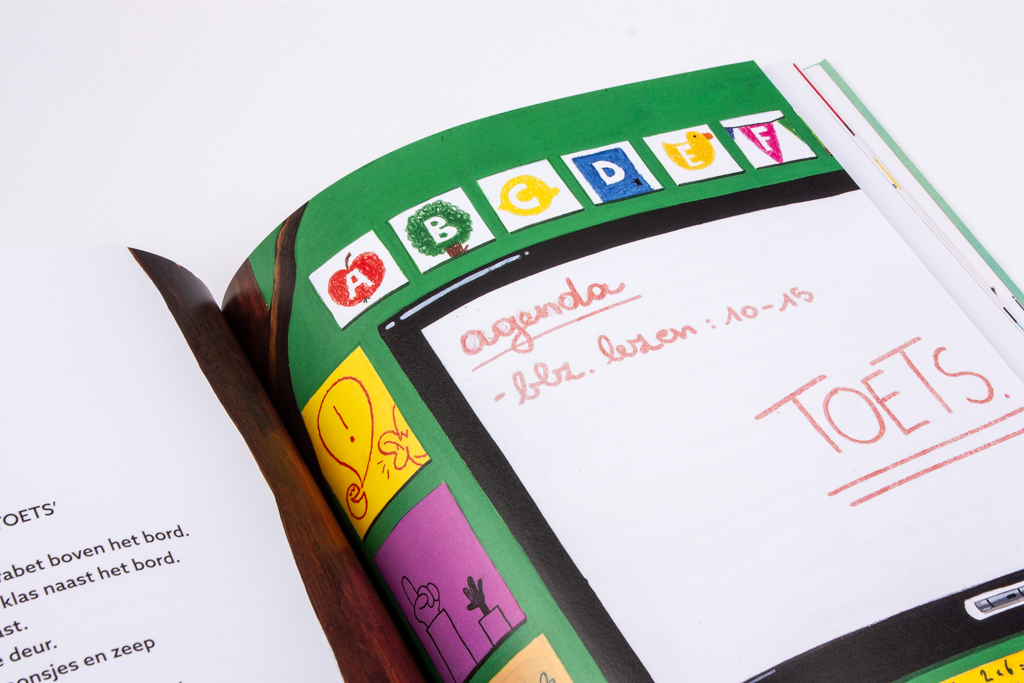 TOETS'
rabet boven het bord.
klas naast het bord.
ast.
e deur.
oonsjes en zeep
A B C D E F
agenda
- blz. lezen : 10-15
TOETS.
!
2 < 6 =